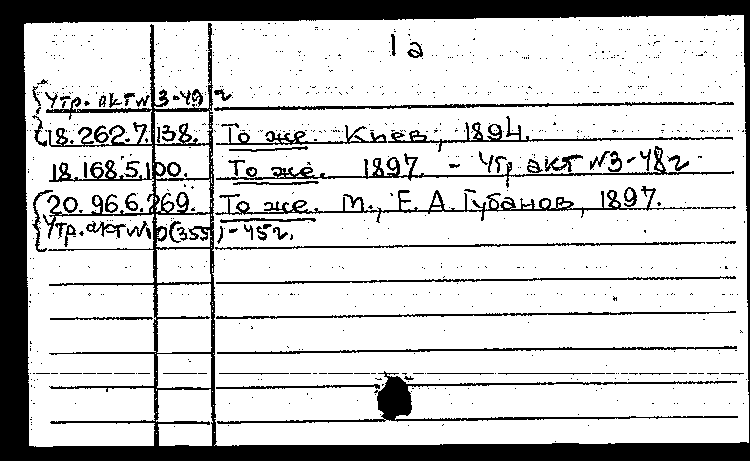 1а
Утр. акт № 3-49 г
18.262.7.138. То же. Киев, 1894.
18.168.5.100. То же. 1897. - Утр акт №3-48г.
20. 96.6.269. То же. М., Е. А. Губанов, 1897.
Утр. акт № 10(355)-45г.